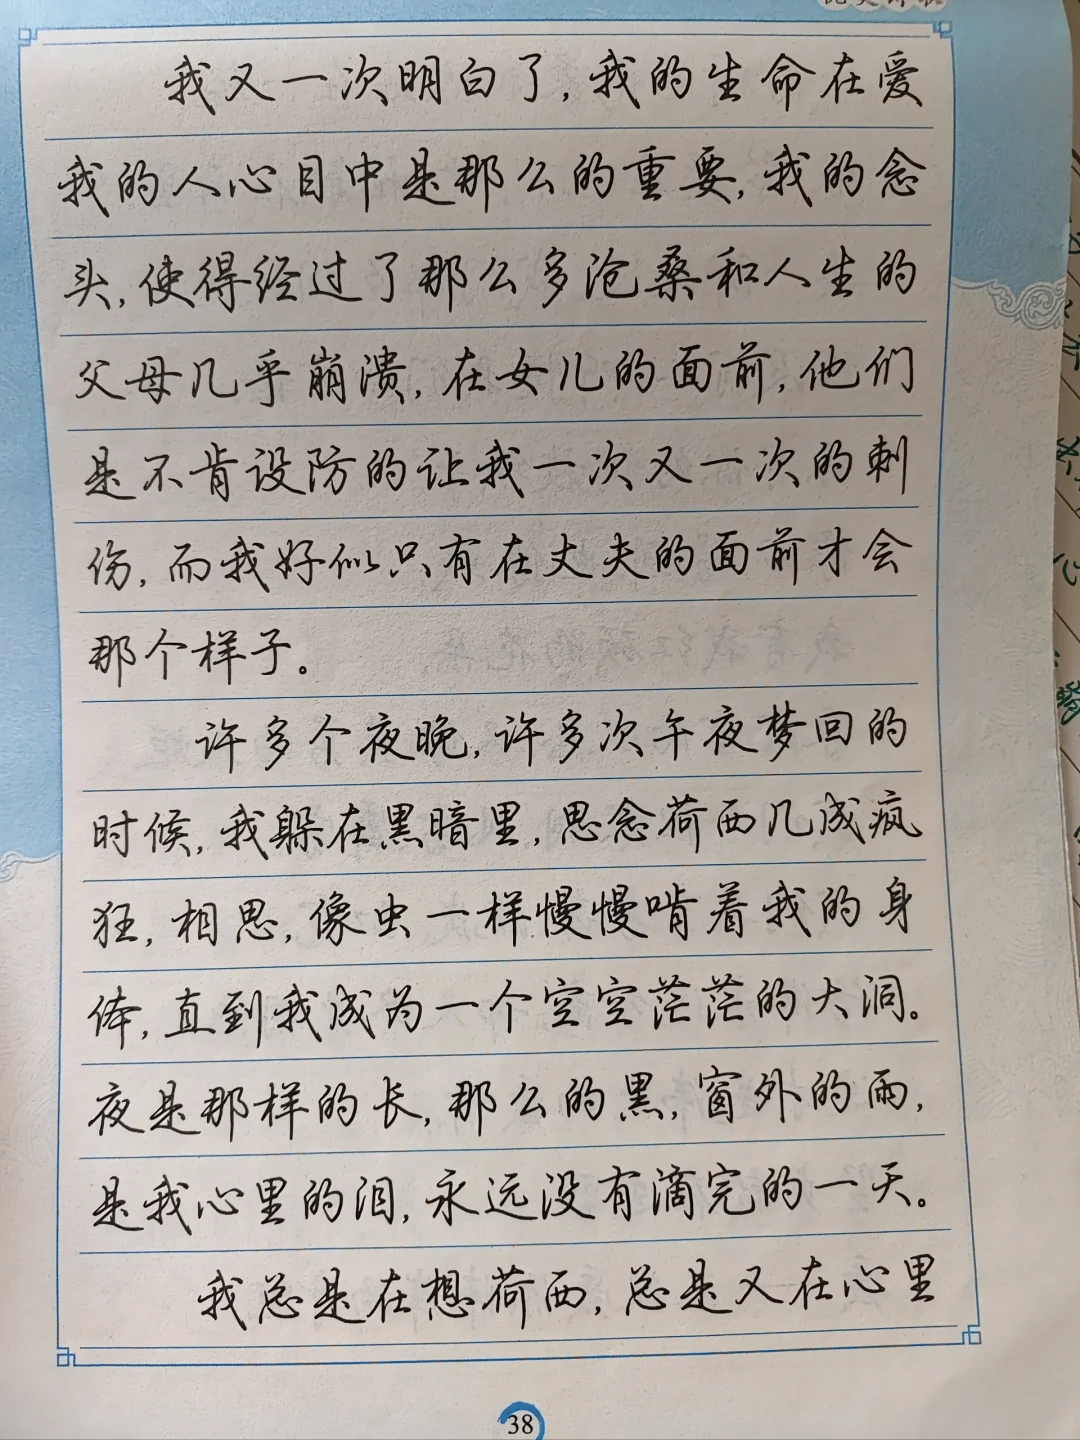 我又一次明白了,我的生命在爱
我的人心目中是那么的重要,我的念
头,使得经过了那么多沧桑和人生的
父母几乎崩溃,在女儿的面前,他们
是不肯设防的让我一次又一次的刺
伤,而我好似只有在丈夫的面前才会
那个样子。
许多个夜晚,许多次午夜梦回的
时候,我躲在黑暗里,思念荷西几成疯
狂,相思,像虫一样慢慢啃着我的身
体,直到我成为一个空空茫茫的大洞。
夜是那样的长,那么的黑,窗外的雨,
是我心里的泪,永远没有滴完的一天。
我总是在想荷西,总是又在心里
38